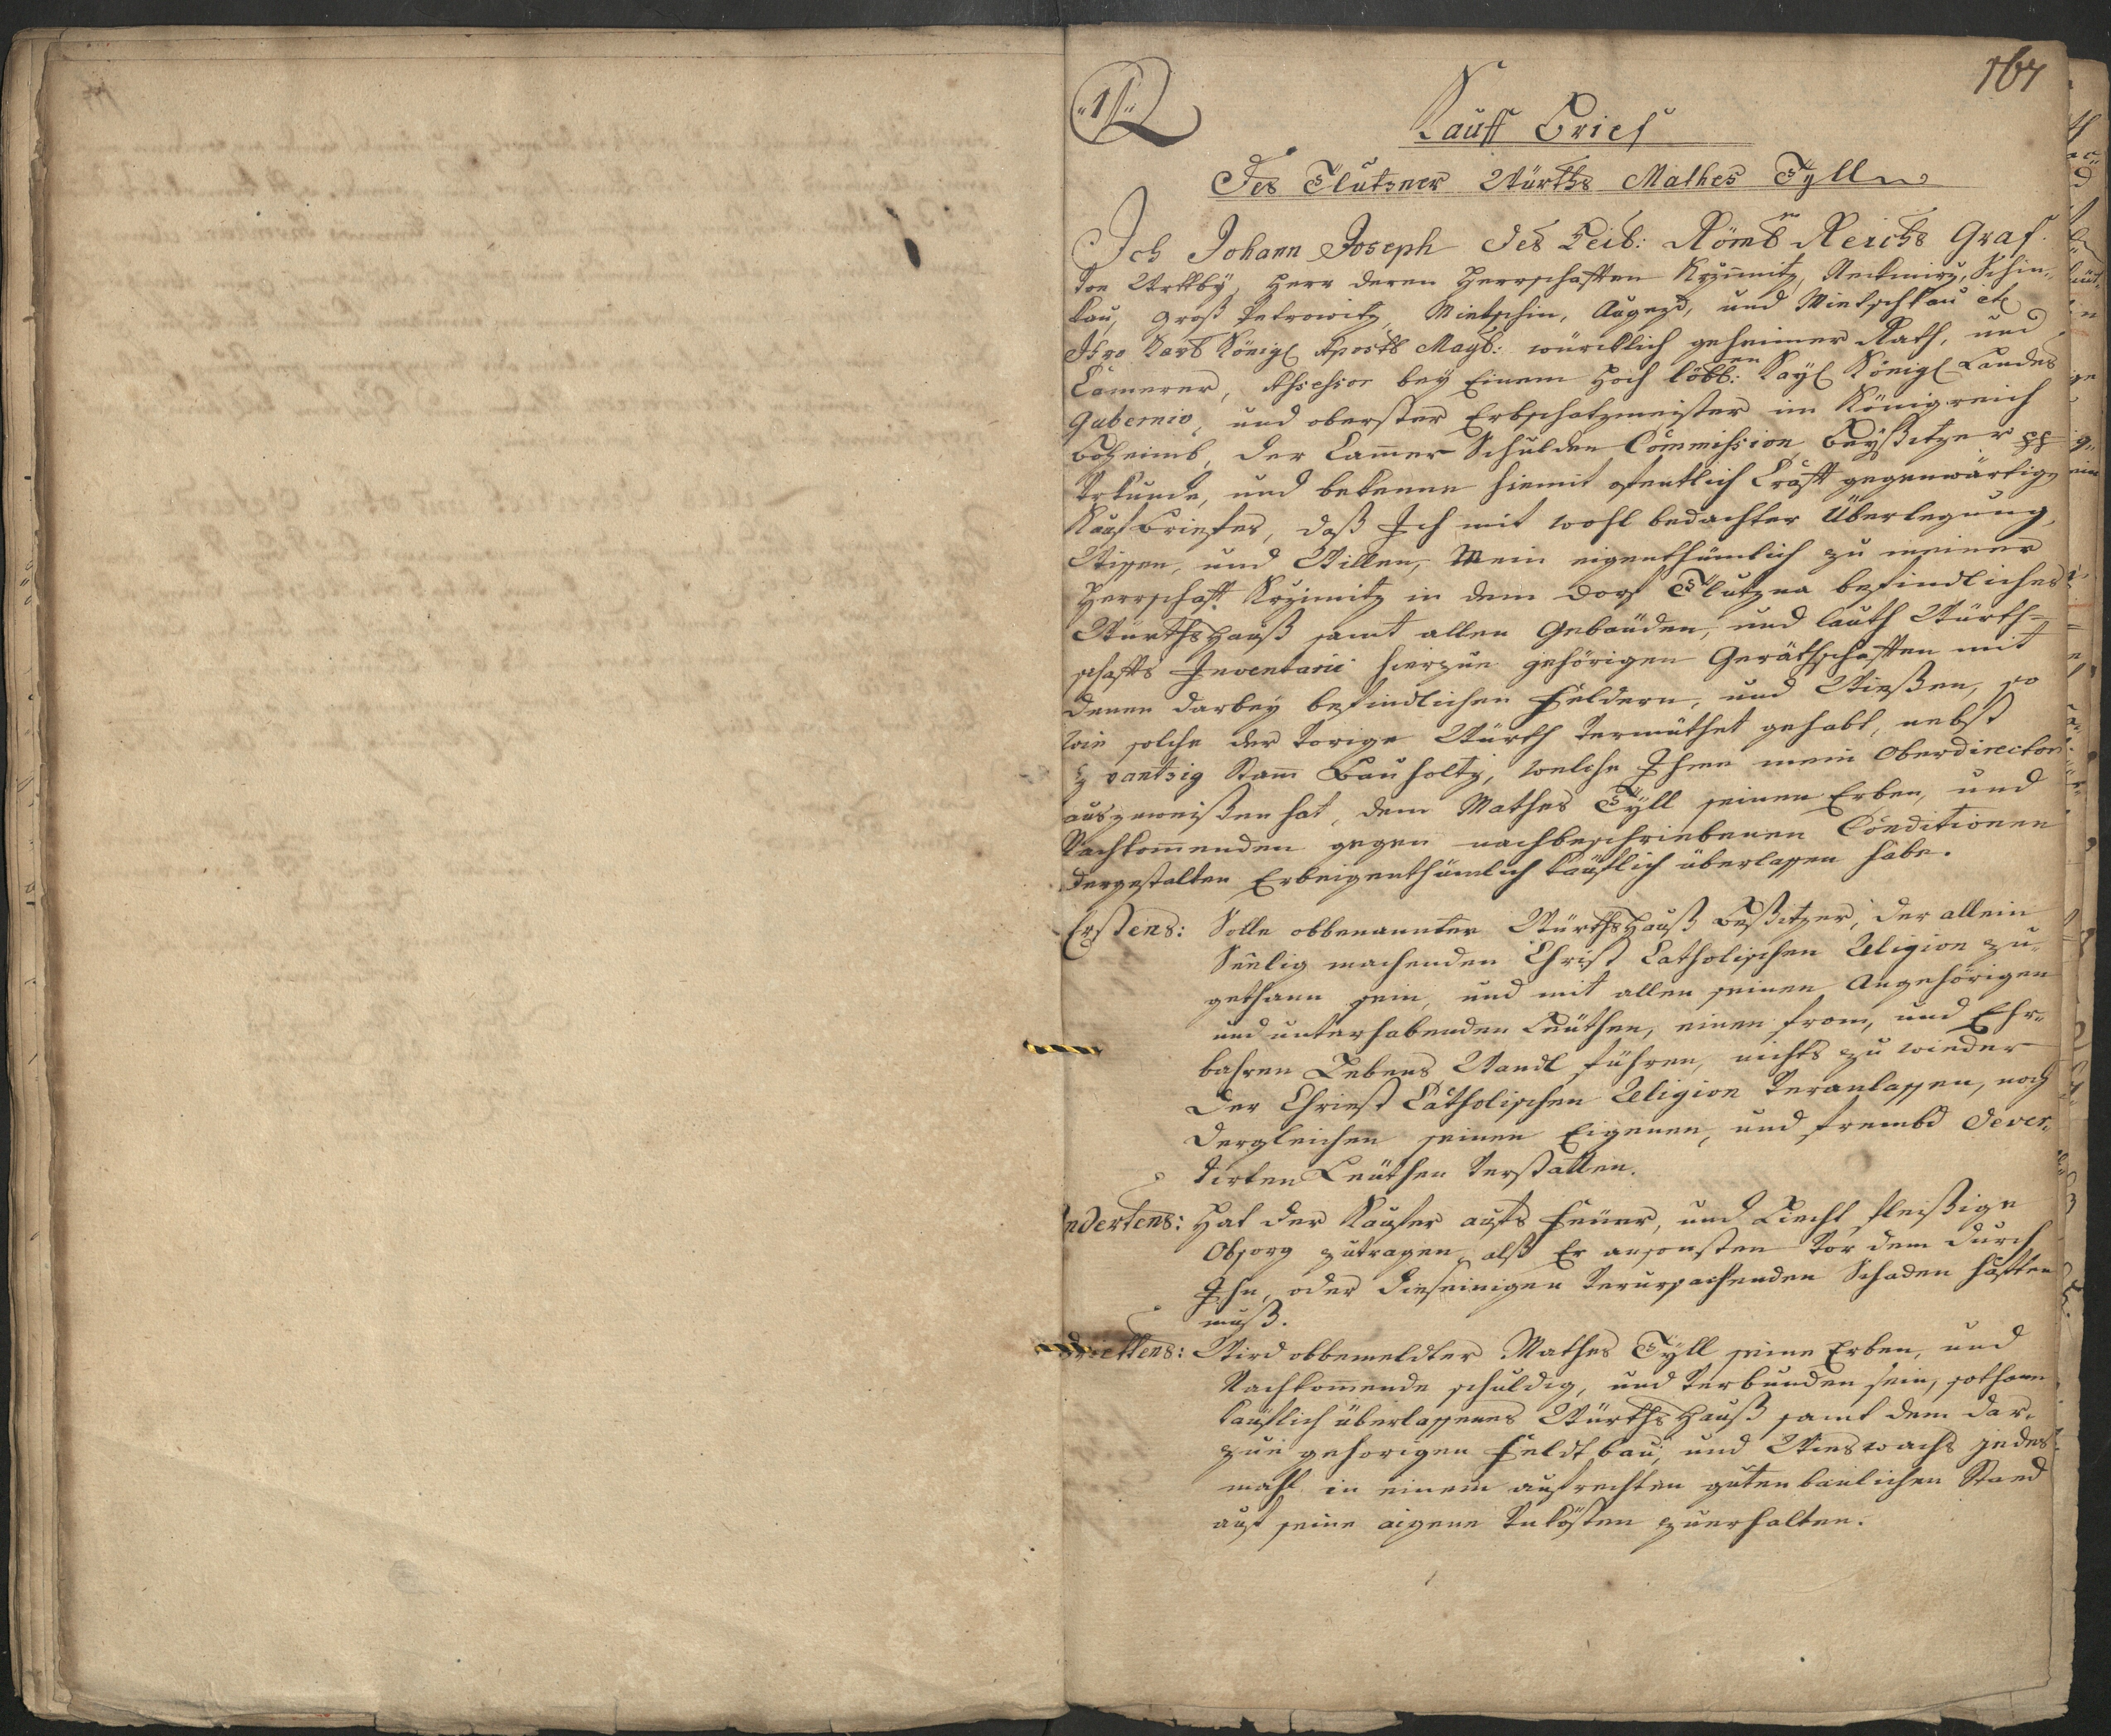 „1„
167
Kauff Brief
Des Tlutzner Würths Mathes Tÿlln
Ich Johann Joseph des Heil: Römb Reichs Graf
von Wrtby, Herr deren Herrschafften Krzimitz, Nekmirz, Schin-
kau, Groß Petrowitz, Mietschin, Augezd, und Wietschkau etc
Ihro Kays Königl Aposto Mayt: würcklich geheimer Rath, und
Camerer, Assessor bey Einem Hoch löbl:en Kayl Königl Landes
Gubernio, und oberster Erbschatzmeister im Königreich
Böheimb, der Cammer Schulden Commission Beÿßitzer pp
Urkunde, und bekenne hiemit ofentlich Crafft gegenwärtig
Kauf Briefes, daß Ich mit wohl bedachter Überlegung,
Wissen, und Willen, Mein eigenthümlich zu meiner
Herrschafft Krzimitz in dem Dorf Tlutzna befindliches
Würths Hauß samt allen Gebäuden, und lauth Würth-
schaffts Inventarii hierzue gehörigen Geräthschafften mit
denen darbey befindlichen Feldern, und Wießen, so
wie solche der vorige Würth vermüthet gehabt, nebst
zwantzig Stam Bauholtz, welche Ihme mein Oberdirector
auszuweißen hat, dem Mathes Tÿll seinen Erben, und
Nachkommenden gegen nachbeschriebenen Conditionen
dergestalten Erbeigenthümlich käuflich überlassen habe.
Erstens: Solle obbenannter Würths Hauß Beßitzer, der allein
Seelig machenden Christ Catholischen Religion zu-
gethann sein, und mit allen seinen Angehörigen
und unterhabenden Leüthen, einen from, und Ehr-
bahren Lebens Wandl führen, nichts zu wieder
der Christ Catholischen Religion veranlassen, noch
dergleichen seinen Eigenen, und frembd dever-
tirten Leüthen verstatten.
ndertens: Hat der Kaufer aufs Feüer, und Liecht fleißige
Obsorg zutragen, alß Er ansonsten vor dem durch
Ihn, oder dieseinigen verursachenden Schaden hafften
muß.
Drittens: Wird obbemeldter Mathes Tÿll seine Erben, und
Nachkommende schuldig, und verbunden sein, sothann
käuflich überlassenes Würths Hauß samt dem dar-
zue gehorigen Feldtbau, und Wieswachs jedes
mahl in einem aufrechten guten baulichen Stand
auf seine aigene Unkösten zuerhalten.